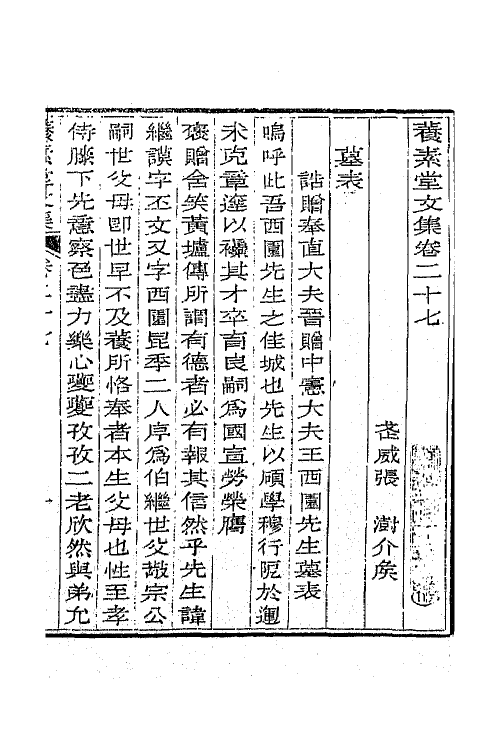 養素堂文集卷二十七
武威張 澍介侯
墓表
誥贈奉直大夫晉贈中憲大夫王西園先生墓表
嗚呼此吾西園先生之佳城也先生以碩學穆行阨於運
未克章逵以穨其才卒有良嗣為國宣勞榮膺
褒贈含笑黃壚傳所謂有德者必有報其信然乎先生諱
繼謨字丕文又字西園昆季二人序為伯繼世父敬宗公
嗣世父母即世早不及養所恪奉者本生父母也性至孝
侍膝下先意察色盡力樂心夔夔孜孜二老欣然與弟允
養素堂文集